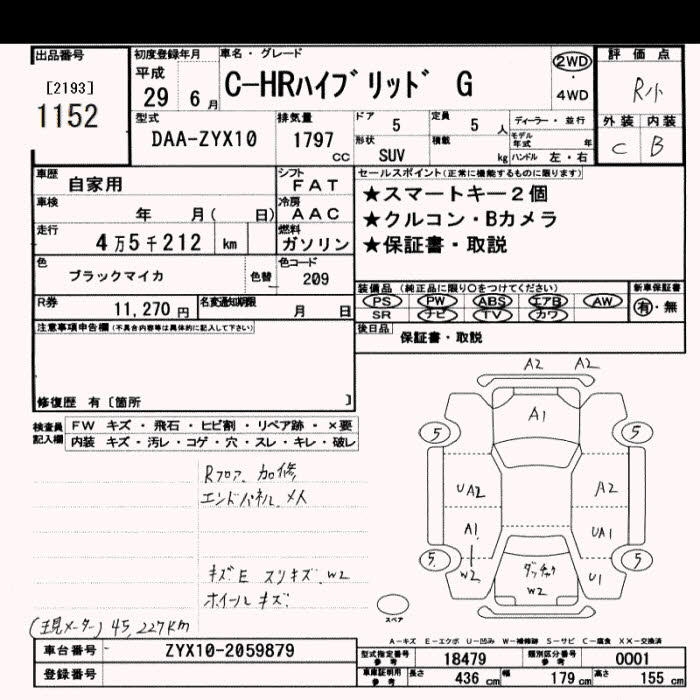 出品番号 初度登録年月 車名・グレード 評価点
[2193]
1152
平成
29 6月
C-HRハイブリッド G
2WD
・
4WD
R小
型式 排気量 ドア 定員 ディーラー・並行 外装 内装
DAA-ZYX10 1797cc 5 5人 モデル年式 年 C B
形状 SUV 積載 kg ハンドル 左・右
車歴 自家用 シフト FAT
セールスポイント(正常に機能するものに限ります)
車検 年 月( 日) 冷房 AAC
★スマートキー2個
★クルコン・Bカメラ
★保証書・取説
走行 4万5千212 km 燃料 ガソリン
色 ブラックマイカ 色替 色コード 209
装備品(純正品に限り○をつけてください) 新車保証書
PS PW ABS エアB AW 有・無
SR ナビ TV カワ
R券 11,270円 名変通知期限 月 日
後日品 保証書・取説
注意事項申告欄(不具合内容等は具体的に記入して下さい)
修復歴 有〔箇所 〕
検査員記入欄 FW キズ・飛石・ヒビ割・リペア跡・×要
内装 キズ・汚レ・コゲ・穴・スレ・キレ・破レ
Rフロア 加修
エンドパネル メ人
キズE スリキズ. W2
ホイールキズ
(現メーター) 45,227km
A2 A2
A1
5 5
UA2 A2
A1 UA1
5 5
W2 U1
ダッチャク
W2
スペア
A-キズ E-エクボ U-凹み W-補修跡 S-サビ C-腐食 XX-交換済
車台番号 ZYX10-2059879 型式指定番号 参考 18479 類別区分番号 参考 0001
登録番号 車庫証明用 参考 長さ 436cm 幅 179cm 高さ 155cm